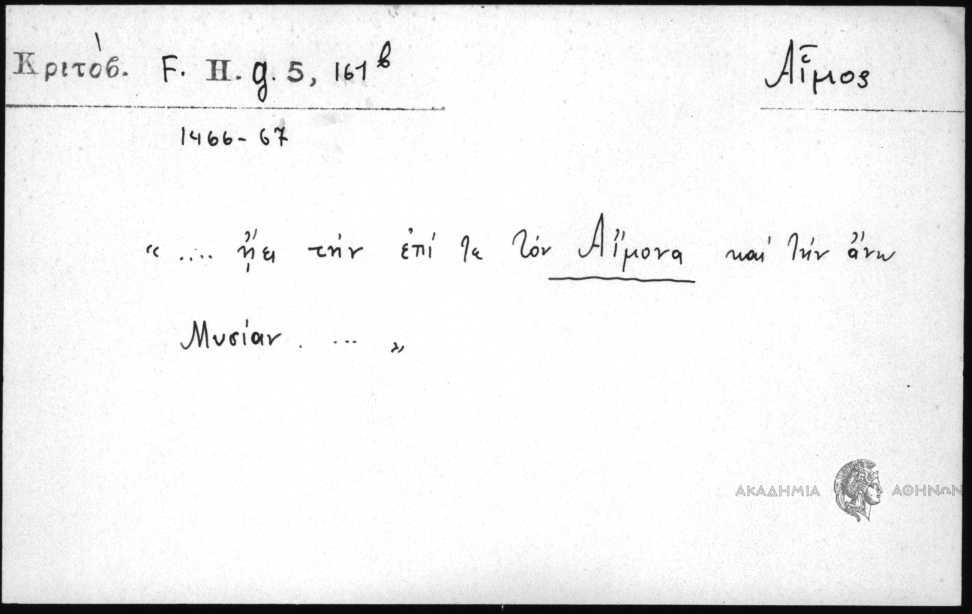 Κριτόβ. F. H. g. 5, 161 b
Αἷμος
1466-67
« .... ᾔει τήν ἐπί τε τόν Αἵμονα καί τήν ἄνω
Μυσίαν. ... »
ΑΚΑΔΗΜΙΑ ΑΘΗΝΩΝ